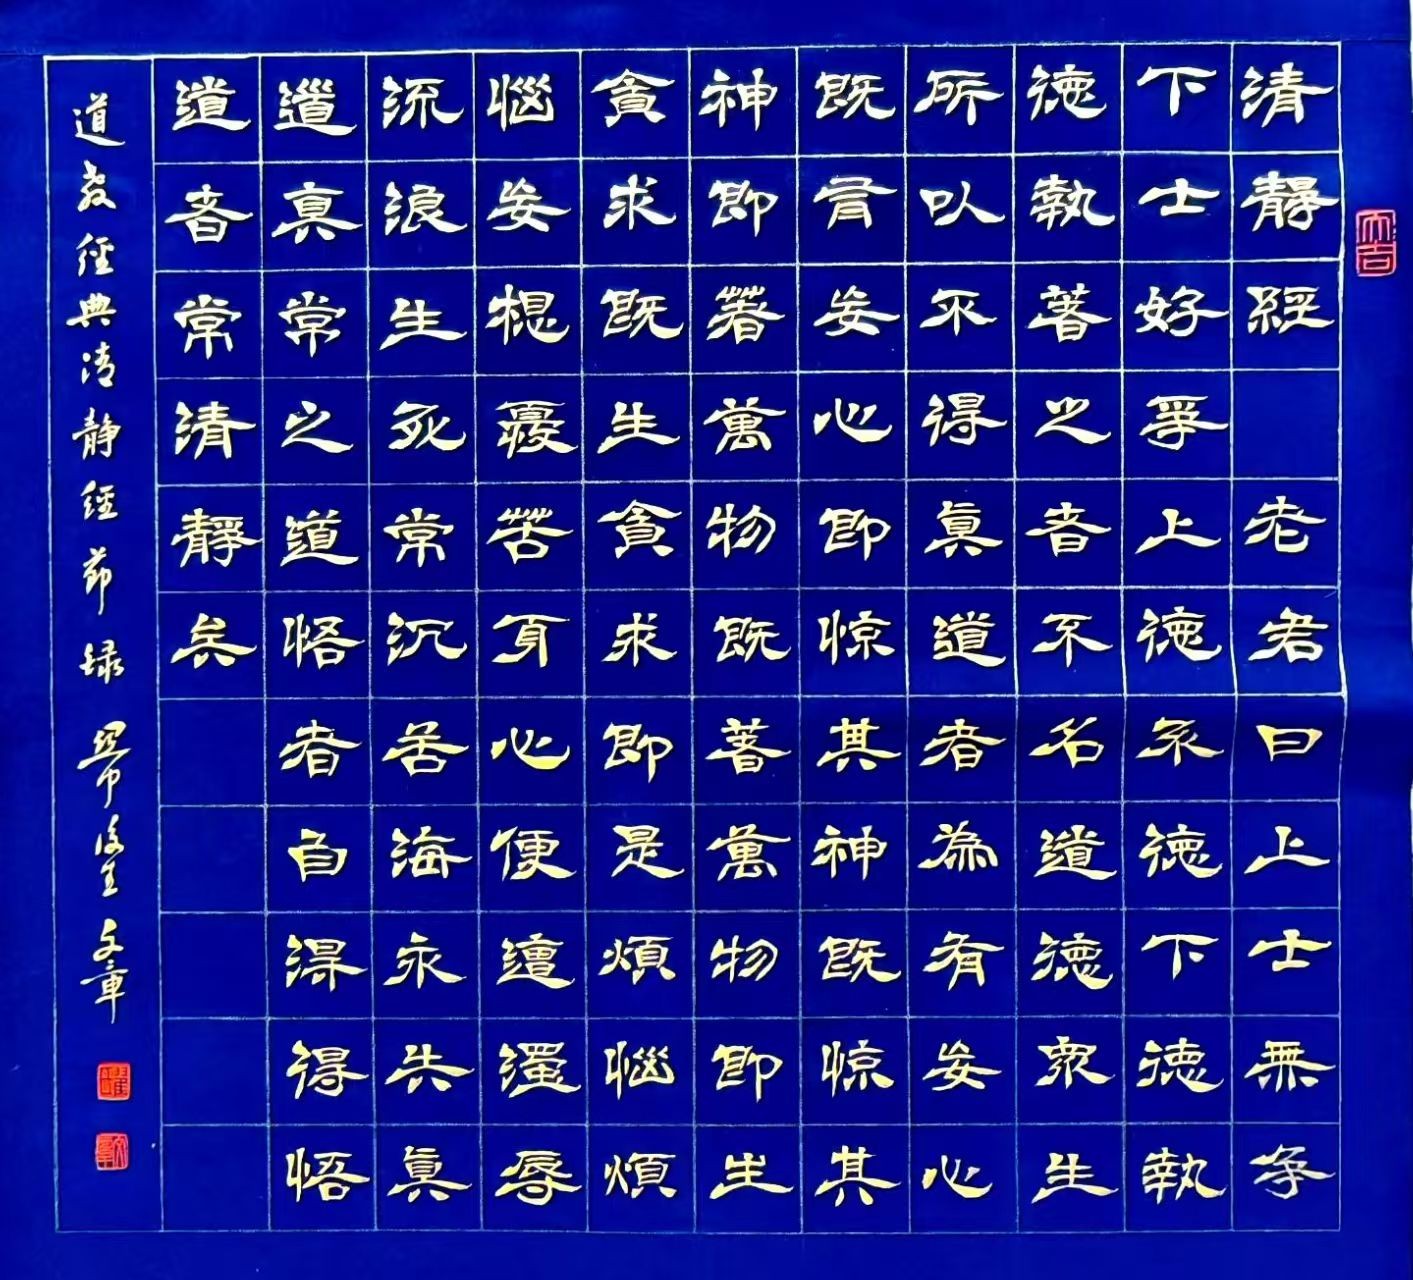 大吉
清靜經 老君曰上士無爭
下士好爭上德不德下德執
德執著之者不名道德眾生
所以不得真道者為有妄心
既有妄心即惊其神既惊其
神即著萬物既著萬物即生
貪求既生貪求即是煩惱煩
惱妄想憂苦身心便遭濁辱
流浪生死常沉苦海永失真
道真常之道悟者自得得悟
道者常清靜矣
道教經典清静經節録 文章